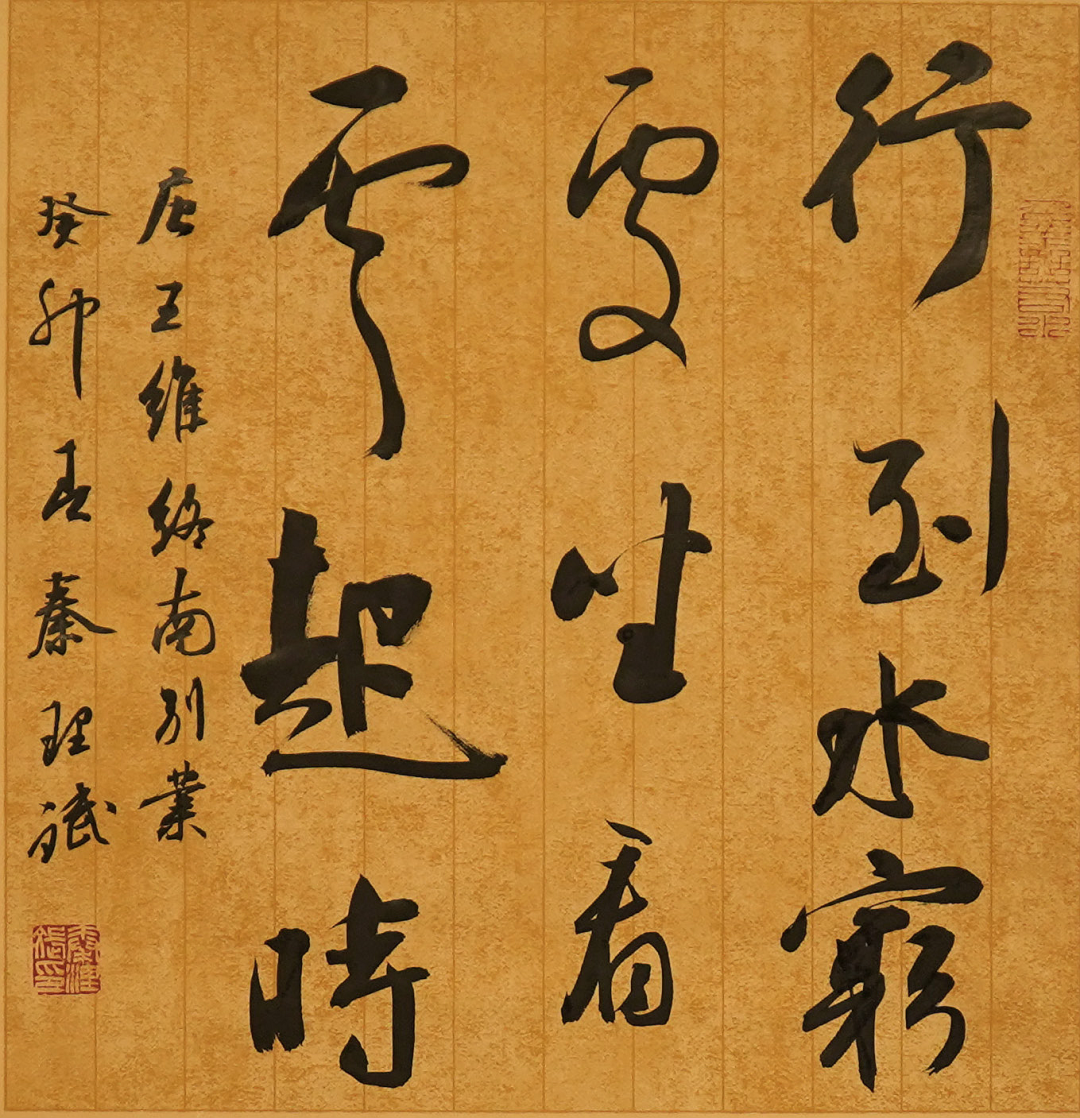 行到水窮
處坐看
雲起時
唐王維終南別業
癸卯春秦理